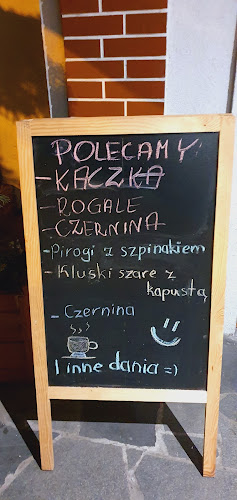 POLECAMY
- KACZKA
- ROGALE
- CZERNINA
- Pirogi z szpinakiem
- Kluski szare z
kapustą
- Czernina
I inne dania =)